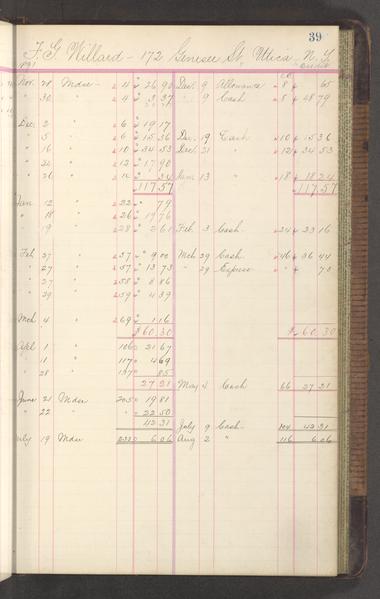 39
F. G. Willard - 172 Genesee St. Utica, N. Y.
1891
Nov. 28 Mdse 4 26 90 Dec. 9 Allowance 8 65
" 30 " 4 3 37 " 9 Cash 8 48 79
Dec. 2 " 6 19 17
" 5 " 6 15 36 Dec. 19 Cash 10 15 36
" 16 " 10 34 53 Dec. 21 " 12 34 53
" 22 " 12 17 90
" 26 " 12 34 Jan 13 " 18 18 24
117 57 117 57
Jan 12 " 22 79
" 18 " 26 19 76
" 19 " 28 2 61 Feb 3 Cash 34 23 16
Feb 27 " 57 9 00 Mch 29 Cash 46 36 44
" 27 " 57 13 73 " 29 Express " 70
" 27 " 58 8 86
" 29 " 59 4 39
Mch 4 " 69 1 16
60 30 60 30
April 1 " 106 21 67
" 11 " 117 4 69
" 28 " 137 85
27 21 May 4 Cash 66 27 21
June 21 Mdse 205 19 81
" 22 " " 22 50
42 31 July 9 Cash 104 42 31
July 19 Mdse 232 6 06 Aug 2 " 116 6 06